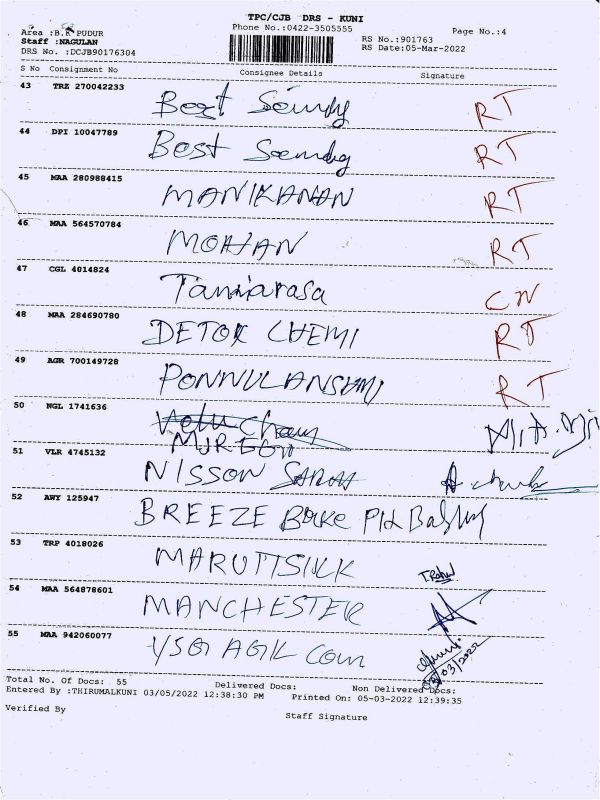 TPC/CJB DRS - KUNI
Phone No.:0422-3505555
Page No.:4
Area :B.K PUDUR
Staff :NAGULAN
DRS No. :DCJB90176304
RS No.:901763
RS Date:05-Mar-2022
S No Consignment No Consignee Details Signature
43 TRZ 270042233 Best RT
44 DPI 10047789 Best RT
45 MAA 280988415 MANIKANAN RT
46 MAA 564570784 MOHAN RT
47 CGL 4014824 CN
48 MAA 284690780 DETOX CHEMI RT
49 AGR 700149728 RT
50 NGL 1741636
51 VLR 4745132 NISSON
52 AWY 125947 BREEZE
53 TRP 4018026 MARUTISILK
54 MAA 564878601 MANCHESTER
55 MAA 942060077 YSG AGIL Com
Total No. Of Docs: 55 Delivered Docs: Non Delivered Docs:
Entered By :THIRUMALKUNI 03/05/2022 12:38:30 PM Printed On: 05-03-2022 12:39:35
Verified By
Staff Signature